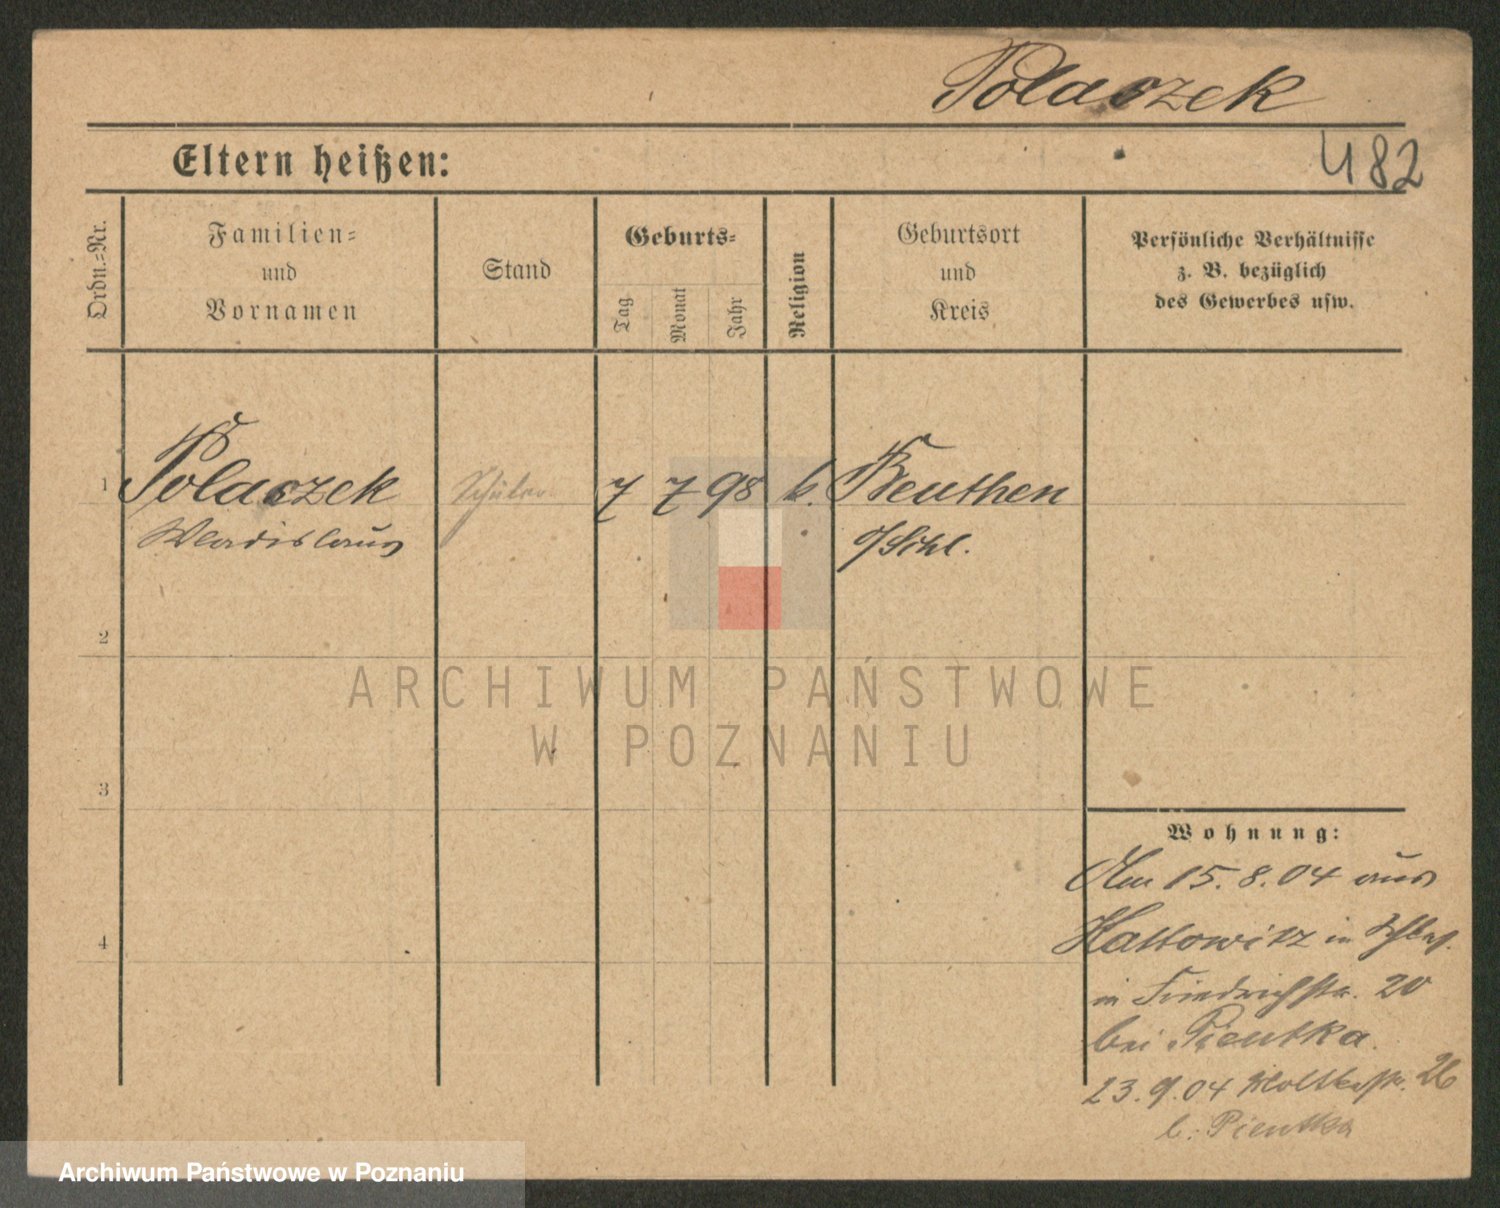 Polaczek
Eltern heißen:
482
Ordn.-Nr.
Familien-
und
Vornamen
Stand
Geburts-
Tag
Monat
Jahr
Religion
Geburtsort
und
Kreis
Persönliche Verhältnisse
z. B. bezüglich
des Gewerbes usw.
1 Polaczek Schüler 7 7 98 k. Beuthen
Wladislaus O/Schl.
2
ARCHIWUM PAŃSTWOWE
W POZNANIU
3
Wohnung:
Am 15.8.04 aus
4 Kattowitz in Schles.
in Friedrichstr. 20
bei Pientka.
23.9.04 Moltkestr. 26
b. Pientka
Archiwum Państwowe w Poznaniu